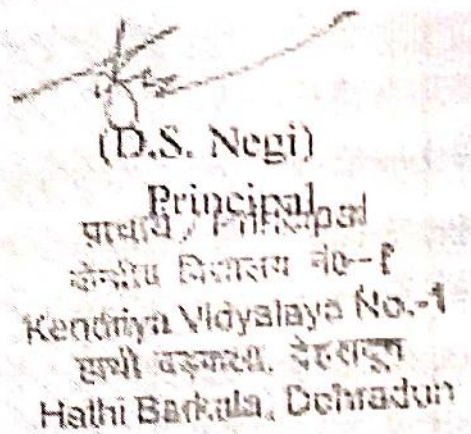 (D.S. Negi)
Principal
प्राचार्य / Principal
केन्द्रीय विद्यालय नं०-1
Kendriya Vidyalaya No.-1
हाथी बड़कला, देहरादून
Hathi Barkala, Dehradun